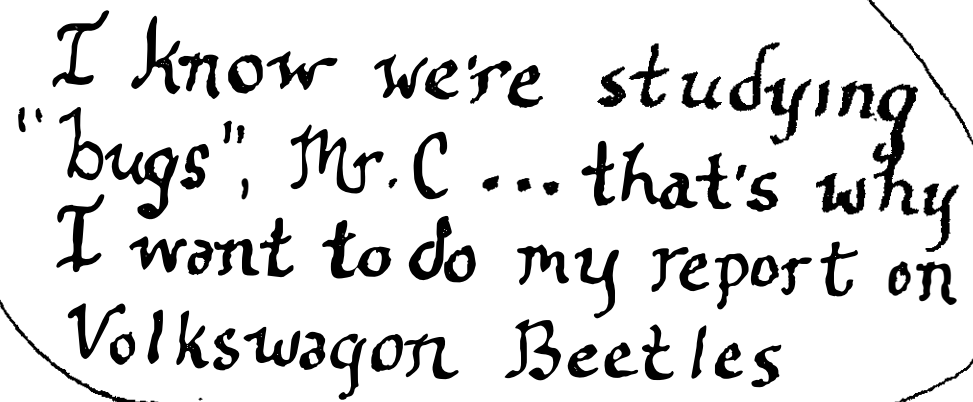 I know we're studying
"bugs", Mr. C ... that's why
I want to do my report on
Volkswagon Beetles